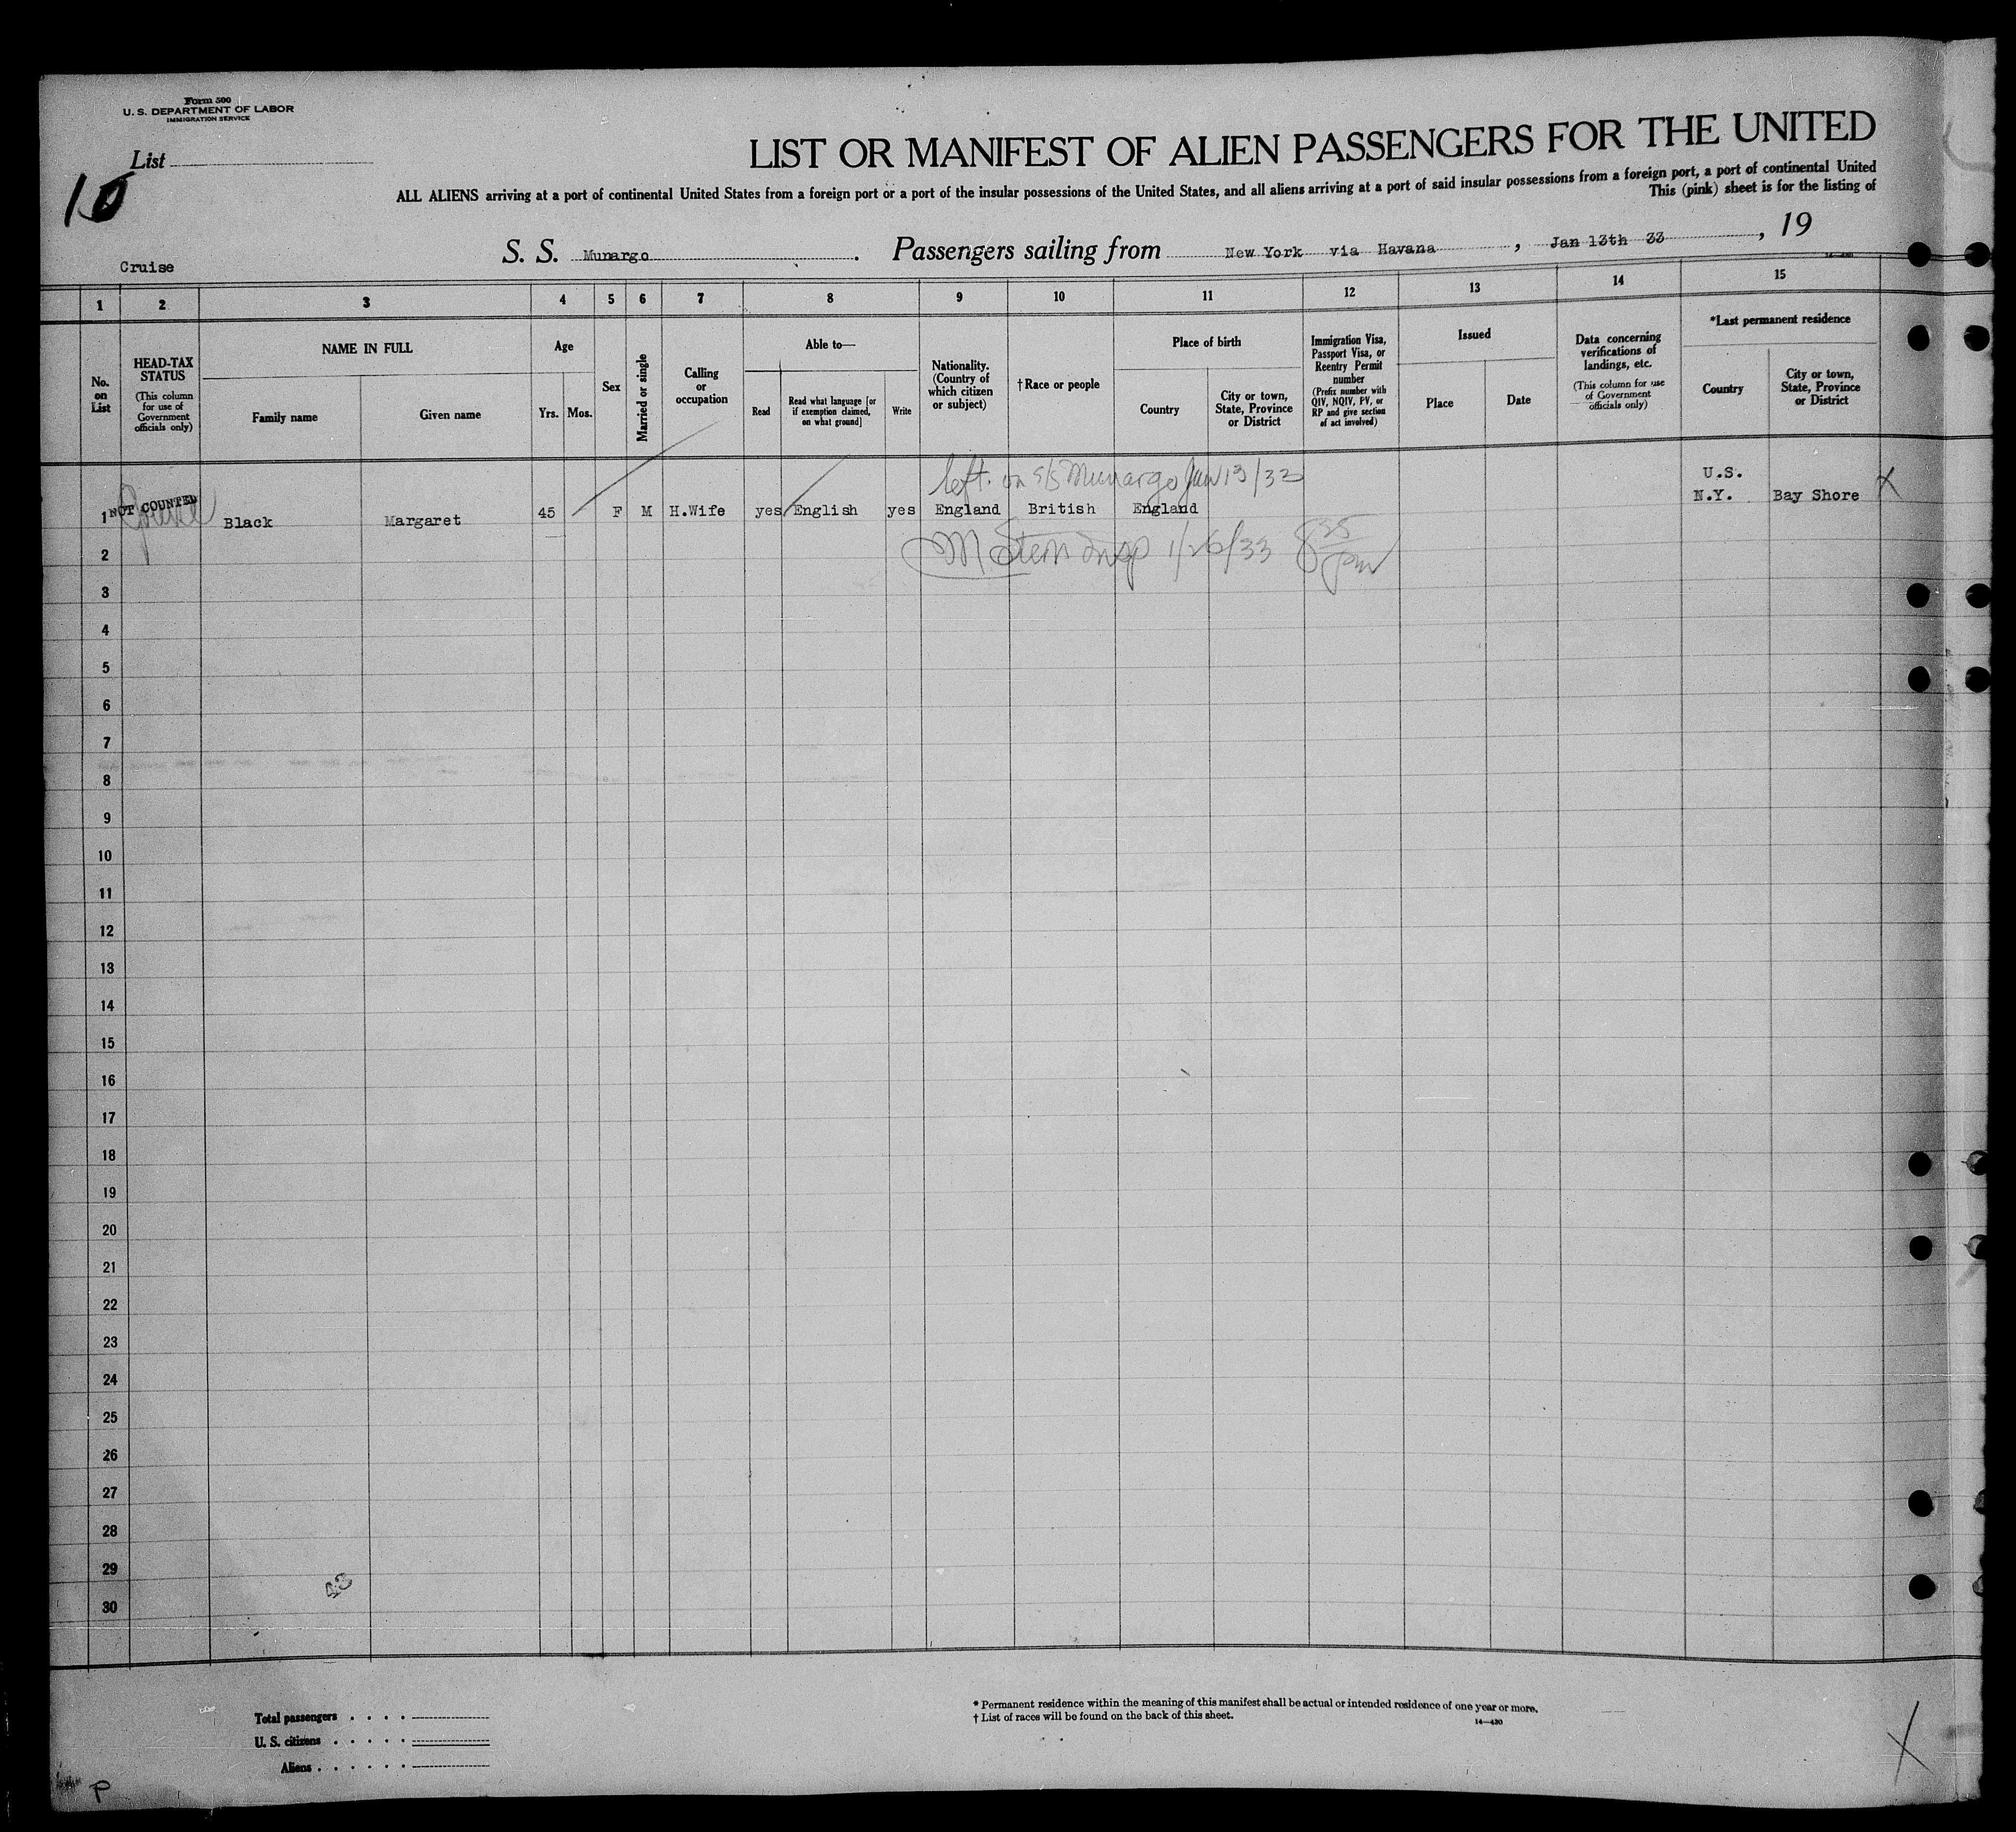 Form 500
U. S. DEPARTMENT OF LABOR
IMMIGRATION SERVICE
List
10
LIST OR MANIFEST OF ALIEN PASSENGERS FOR THE UNITED
ALL ALIENS arriving at a port of continental United States from a foreign port or a port of the insular possessions of the United States, and all aliens arriving at a port of said insular possessions from a foreign port, a port of continental United
This (pink) sheet is for the listing of
Cruise
S. S. Munargo. Passengers sailing from New York via Havana, Jan 13th 33, 19
1 2 3 4 5 6 7 8 9 10 11 12 13 14 15
No. on List
HEAD-TAX STATUS
(This column for use of Government officials only)
NAME IN FULL
Family name
Given name
Age
Yrs. Mos.
Sex
Married or single
Calling or occupation
Able to—
Read
Read what language [or if exemption claimed, on what ground]
Write
Nationality. (Country of which citizen or subject)
†Race or people
Place of birth
Country
City or town, State, Province or District
Immigration Visa, Passport Visa, or Reentry Permit number
(Prefix number with QIV, NQIV, PV, or RP and give section of act involved)
Issued
Place
Date
Data concerning verifications of landings, etc.
(This column for use of Government officials only)
*Last permanent residence
Country
City or town, State, Province or District
left on S/S Munargo Jan 13/33
U.S.
1 NOT COUNTED Black Margaret 45 F M H.Wife yes English yes England British England N.Y. Bay Shore X
2 M Stern insp 1/26/33 8 35
3
4
5
6
7
8
9
10
11
12
13
14
15
16
17
18
19
20
21
22
23
24
25
26
27
28
29
30
43
Total passengers
U. S. citizens
Aliens
* Permanent residence within the meaning of this manifest shall be actual or intended residence of one year or more.
† List of races will be found on the back of this sheet.
14—430
X
P